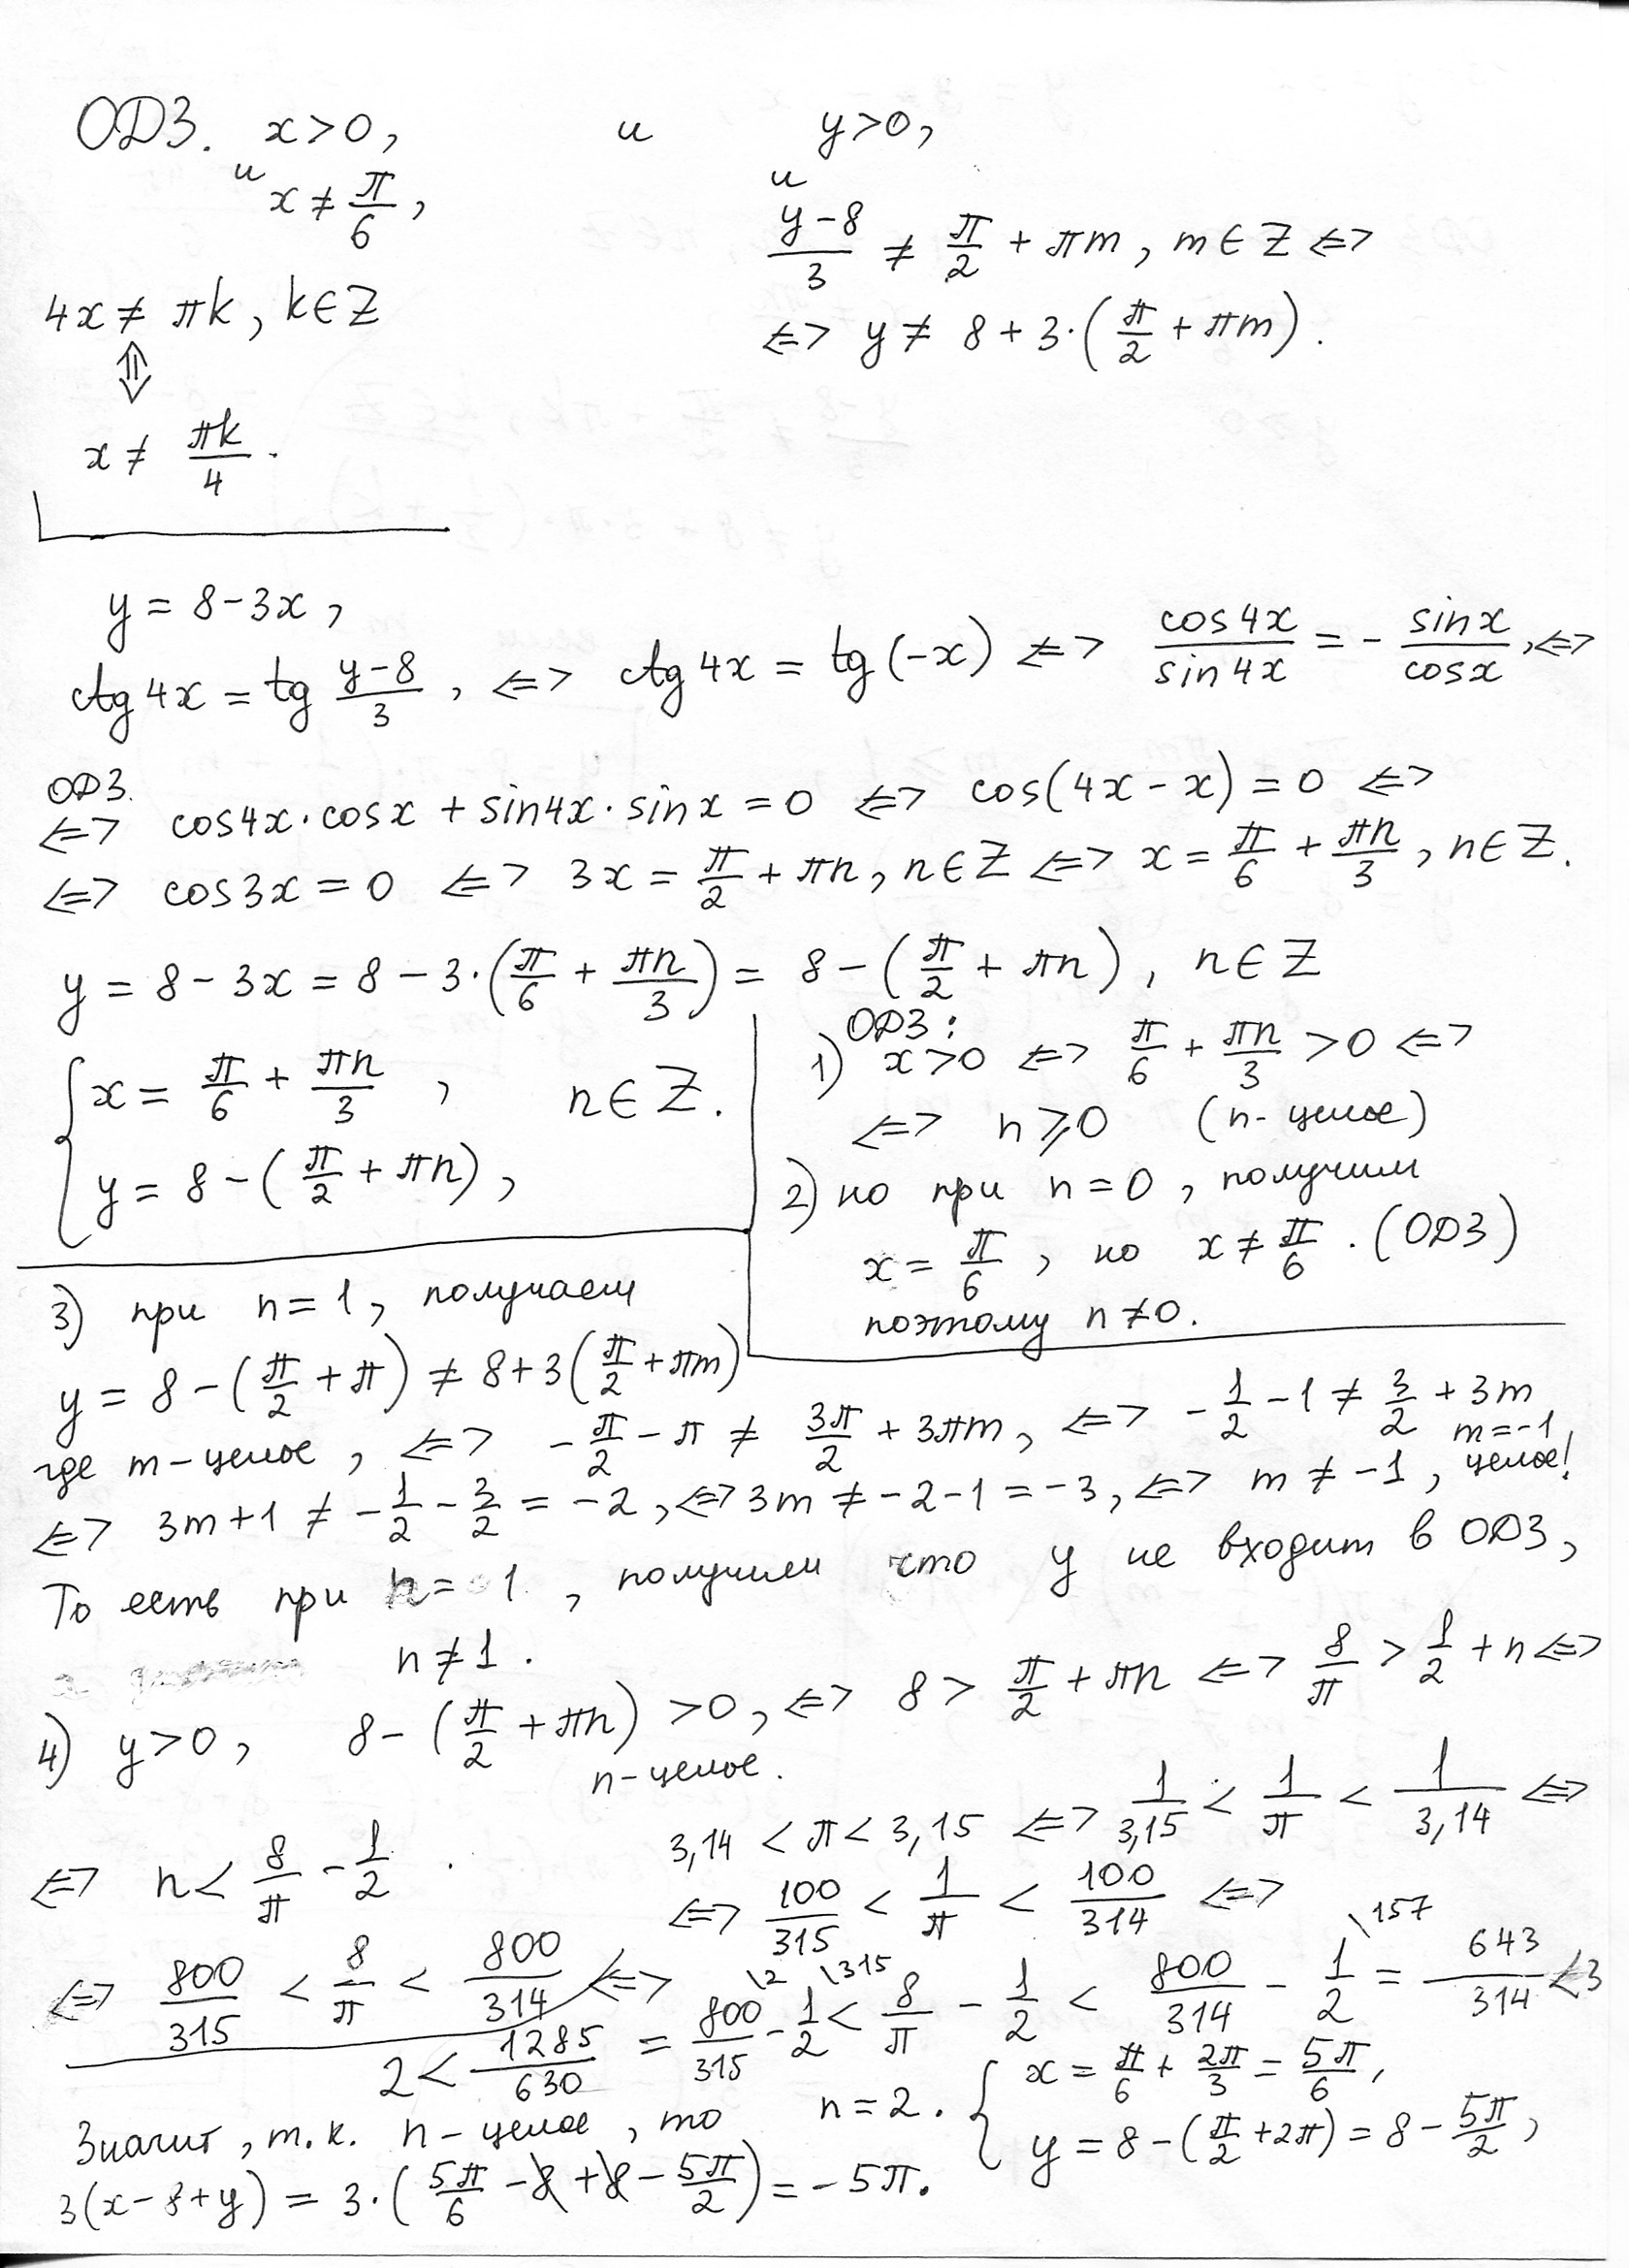 ОДЗ. x>0, и y>0,
и x ≠ π/6, и
(y-8)/3 ≠ π/2 + πm, m∈Z <=>
4x ≠ πk, k∈Z
<=> y ≠ 8 + 3·(π/2 + πm).
⇕
x ≠ πk/4.
y = 8-3x,
ctg 4x = tg (y-8)/3, <=> ctg 4x = tg(-x) <=> cos4x/sin4x = - sinx/cosx, <=>
ОДЗ.
<=> cos4x·cosx + sin4x·sinx = 0 <=> cos(4x-x) = 0 <=>
<=> cos3x = 0 <=> 3x = π/2 + πn, n∈Z <=> x = π/6 + πn/3, n∈Z.
y = 8-3x = 8-3·(π/6 + πn/3) = 8-(π/2 + πn), n∈Z
{ x = π/6 + πn/3, n∈Z.
y = 8-(π/2 + πn),
ОДЗ:
1) x>0 <=> π/6 + πn/3 > 0 <=>
<=> n ⩾ 0 (n-целое)
2) но при n=0, получим
x = π/6, но x ≠ π/6. (ОДЗ)
поэтому n≠0.
3) при n=1, получаем
y = 8-(π/2 + π) ≠ 8+3(π/2 + πm)
где m-целое, <=> -π/2 - π ≠ 3π/2 + 3πm, <=> -1/2 - 1 ≠ 3/2 + 3m
m=-1
<=> 3m+1 ≠ -1/2 - 3/2 = -2, <=> 3m ≠ -2-1 = -3, <=> m ≠ -1, целое!
То есть при n=1, получим что y не входит в ОДЗ,
n≠1.
4) y>0, 8-(π/2 + πn) > 0, <=> 8 > π/2 + πn <=> 8/π > 1/2 + n <=>
n-целое.
<=> n < 8/π - 1/2.
3,14 < π < 3,15 <=> 1/3,15 < 1/π < 1/3,14 <=>
<=> 100/315 < 1/π < 100/314 <=>
<=> 800/315 < 8/π < 800/314 <=>
2 < 1285/630 = 800/315\2 - 1/2\315 < 8/π - 1/2 < 800/314 - 1/2\157 = 643/314 < 3
Значит, т.к. n-целое, то n=2. { x = π/6 + 2π/3 = 5π/6,
y = 8-(π/2 + 2π) = 8 - 5π/2,
3(x-8+y) = 3·(5π/6 - 8 + 8 - 5π/2) = -5π.